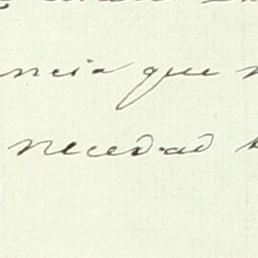 ncia que
necedad